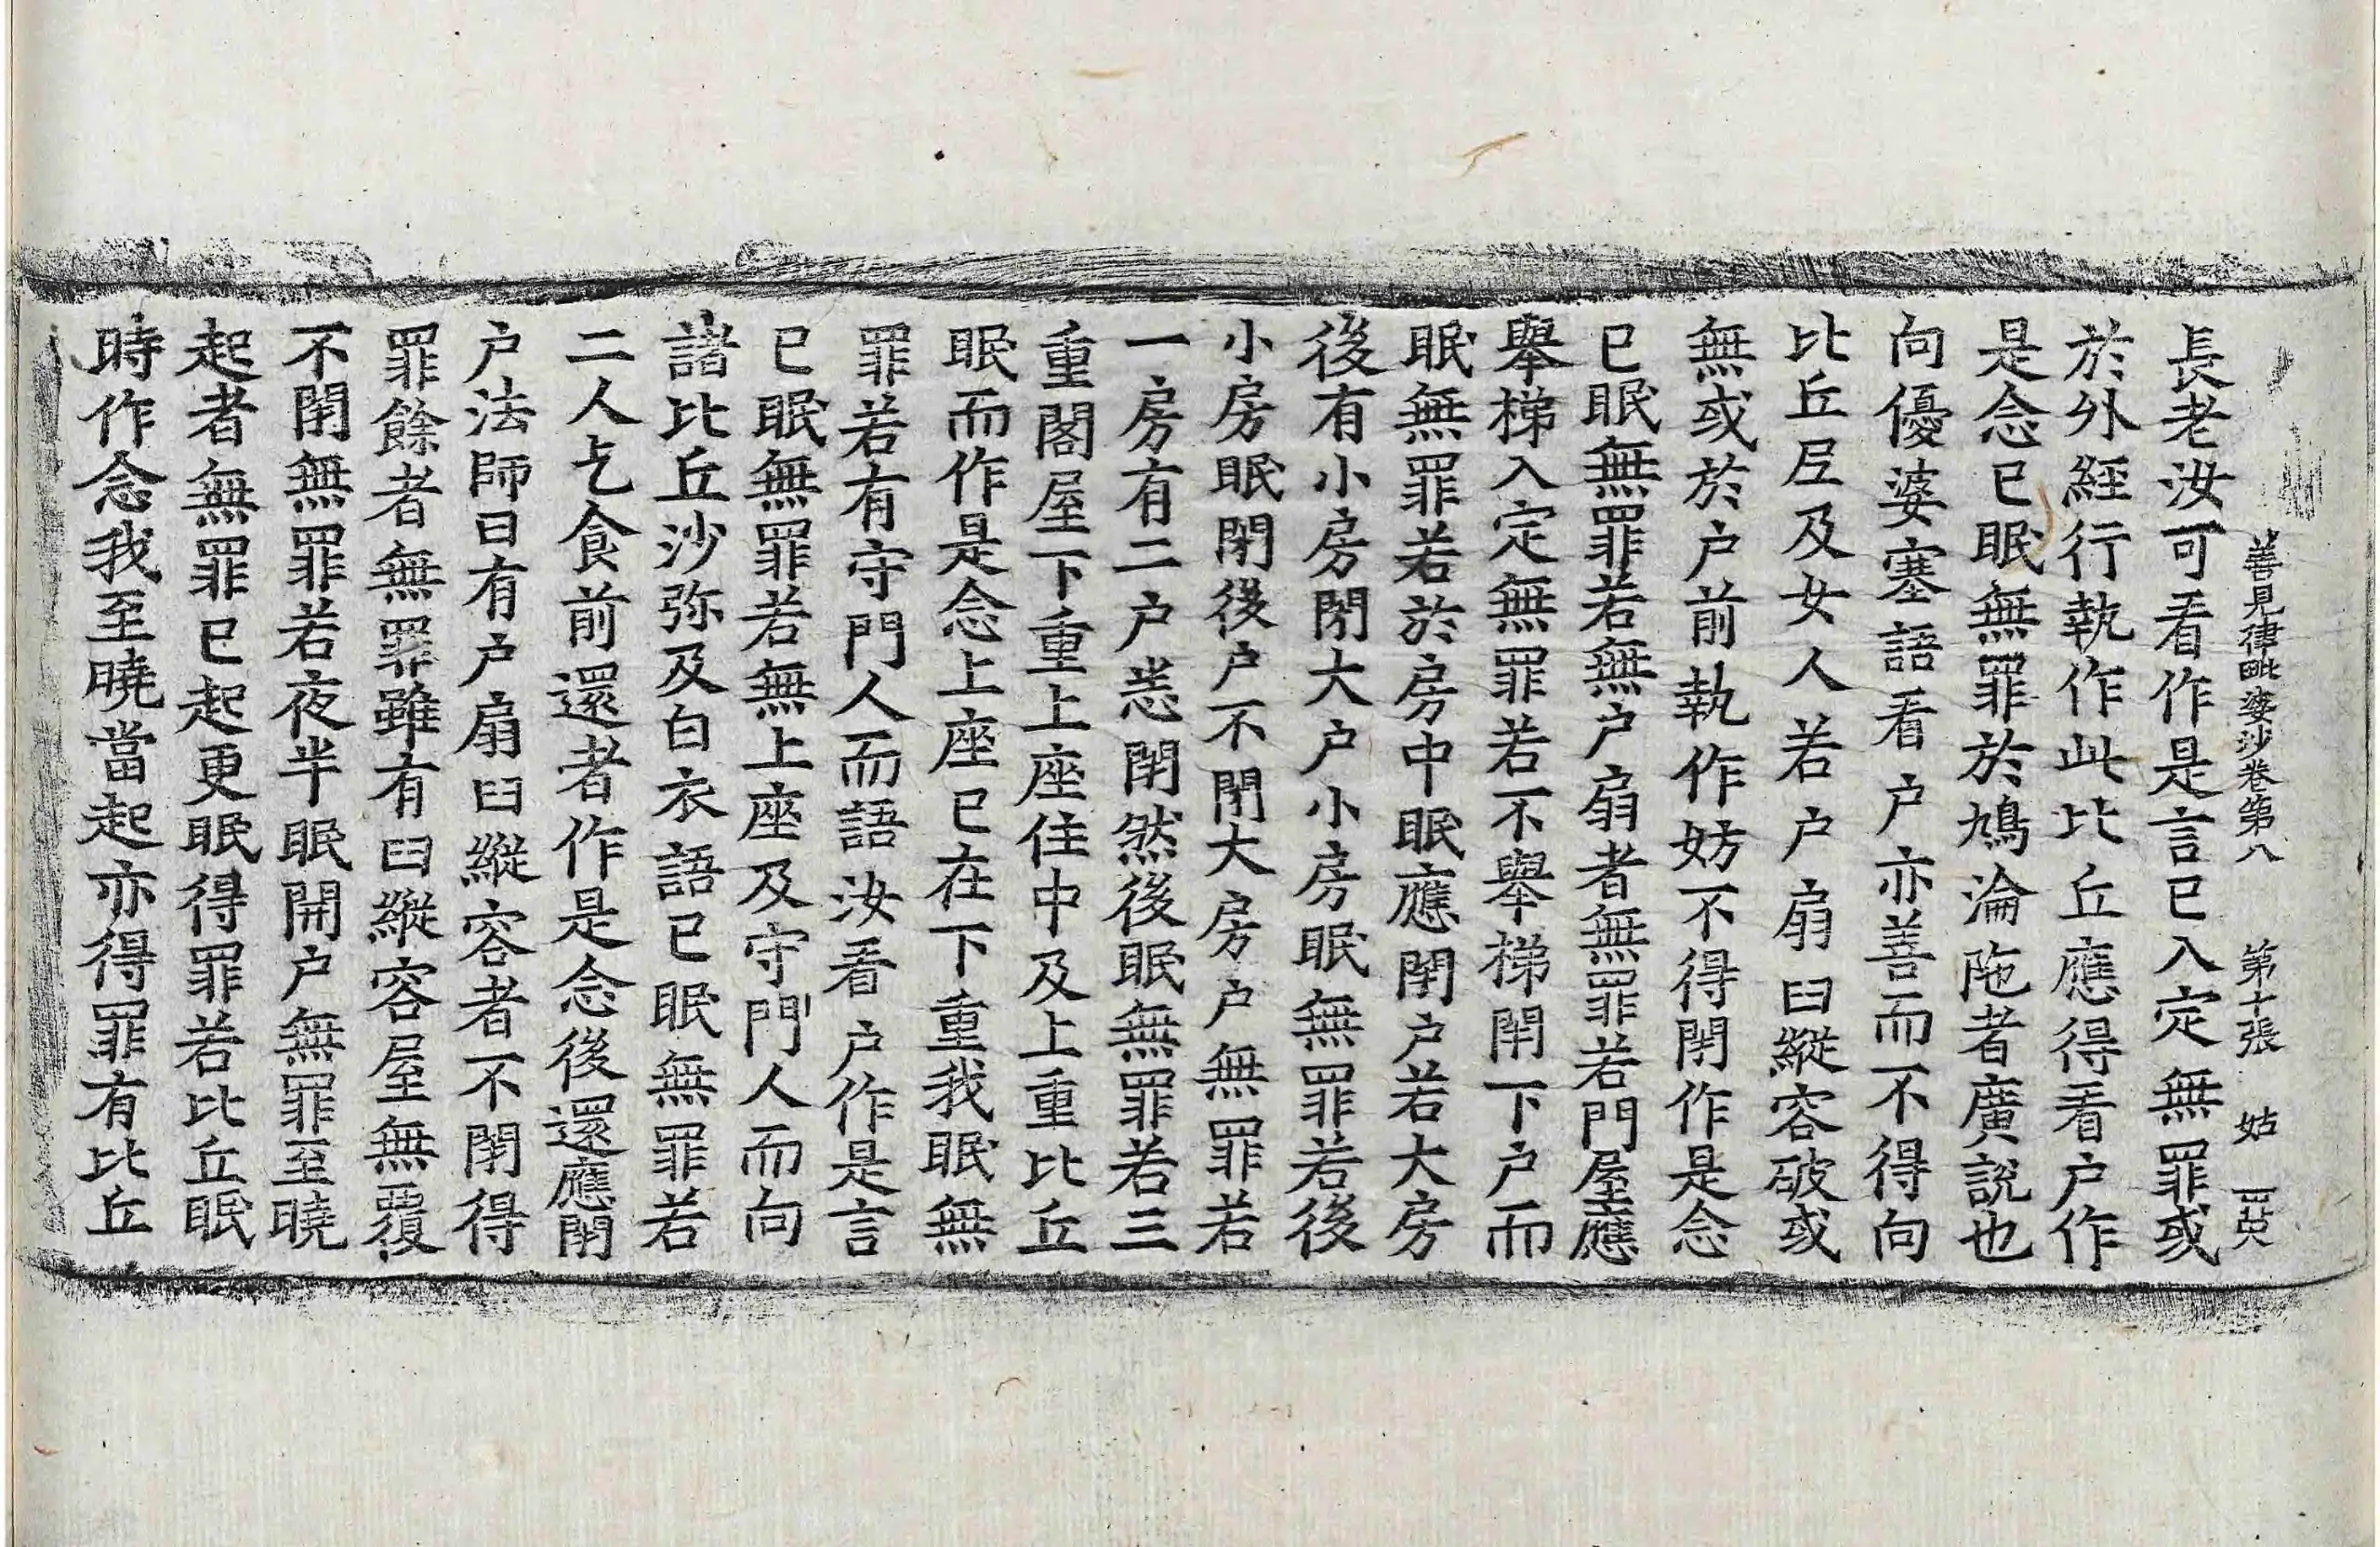 善見律毗婆沙卷第八 第十張 姑
長老汝可看作是言已入定無罪或
於外經行執作此比丘應得看户作
是念已眠無罪於鳩淪陁者廣說也
向優婆塞語看户亦善而不得向
比丘尼及女人若户扇臼縱容破或
無或於户前執作妨不得閇作是念
已眠無罪若無户扇者無罪若門屋應
舉梯入定無罪若不舉梯閇下户而
眠無罪若於房中眠應閇户若大房
後有小房閇大户小房眠無罪若後
小房眠閇後户不閇大房户無罪若
一房有二户悉閇然後眠無罪若三
重閣屋下重上座住中及上重比丘
眠而作是念上座已在下重我眠無
罪若有守門人而語汝看户作是言
已眠無罪若無上座及守門人而向
諸比丘沙弥及白衣語已眠無罪若
二人乞食前還者作是念後還應閇
户法師曰有户扇臼縱容者不閇得
罪餘者無罪雖有臼縱容屋無覆
不閇無罪若夜半眠開户無罪至曉
起者無罪已起更眠得罪若比丘眠
時作念我至曉當起亦得罪有比丘